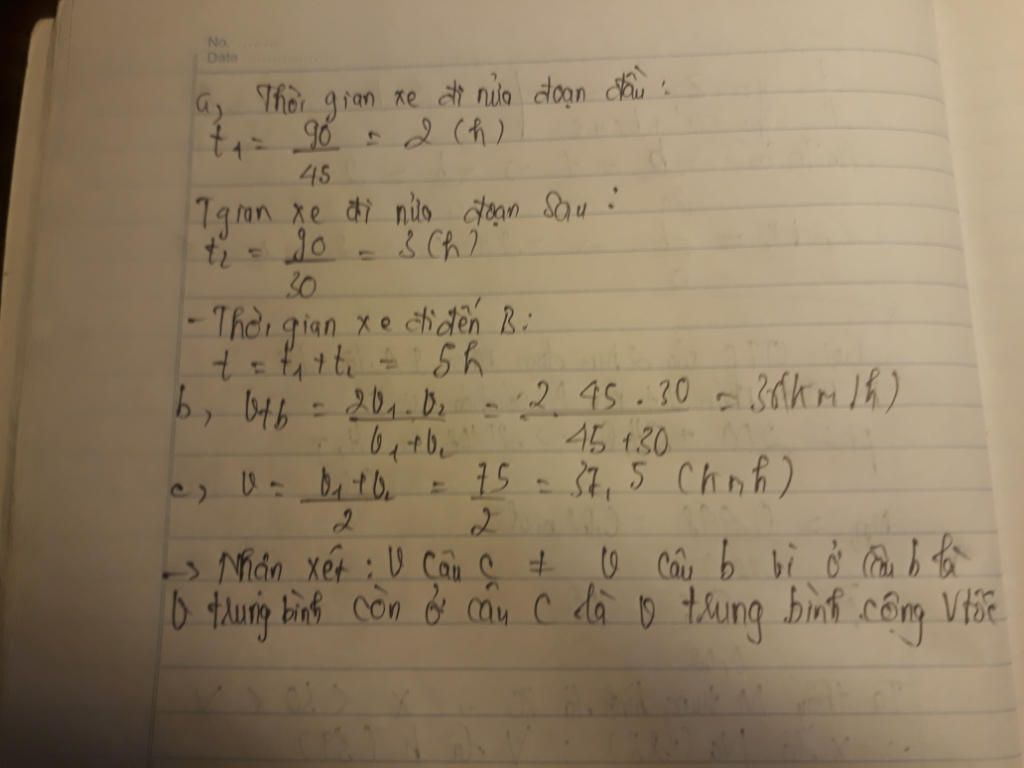 No. ..........
Date ..................
a, Thời gian xe đi nửa đoạn đầu :
t1 = 90/45 = 2 (h)
Tgian xe đi nửa đoạn sau :
t2 = 90/30 = 3 (h)
- Thời gian xe đi đến B :
t = t1 + t2 = 5h
b, vtb = 2v1 . v2 / v1 + v2 = 2 . 45 . 30 / 45 + 30 = 36 (km/h)
c, v = v1 + v2 / 2 = 75/2 = 37,5 (km/h)
-> Nhận xét : v câu c ≠ v câu b vì ở câu b là
v trung bình còn ở câu c là v trung bình cộng vtốc